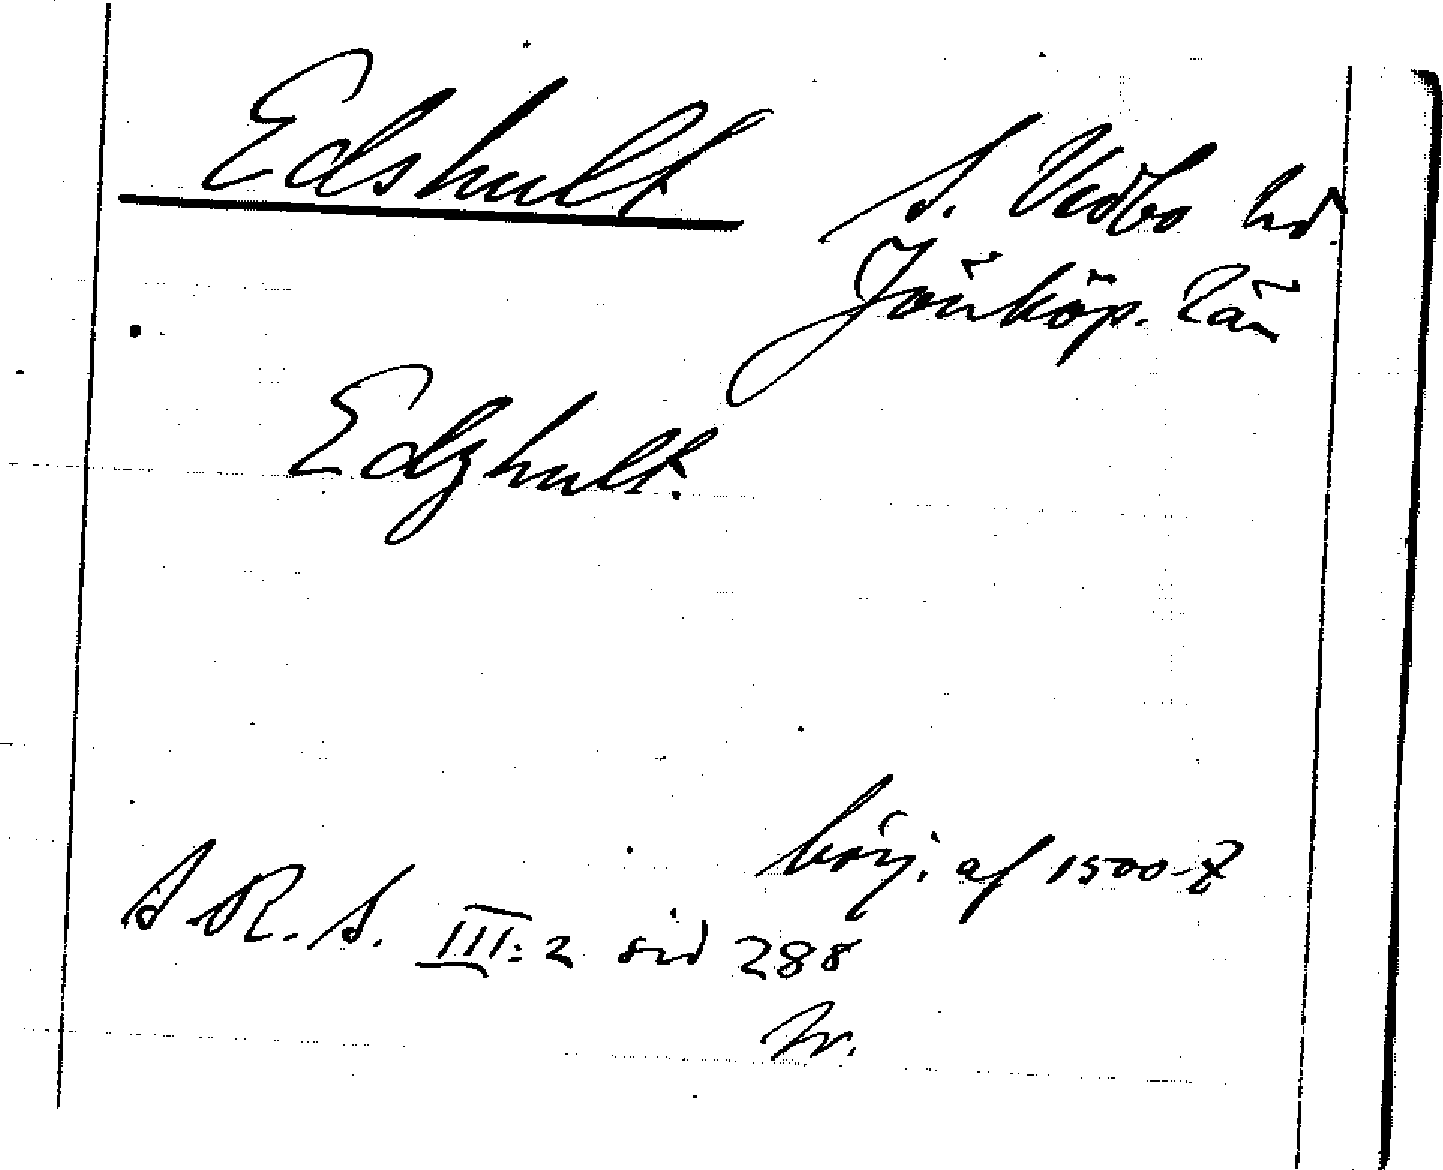 Edshult S. Vedbo hd.
Jönköp. län
Edzhult.
börj. af 1500-t
S.R.S. III:2 sid 288